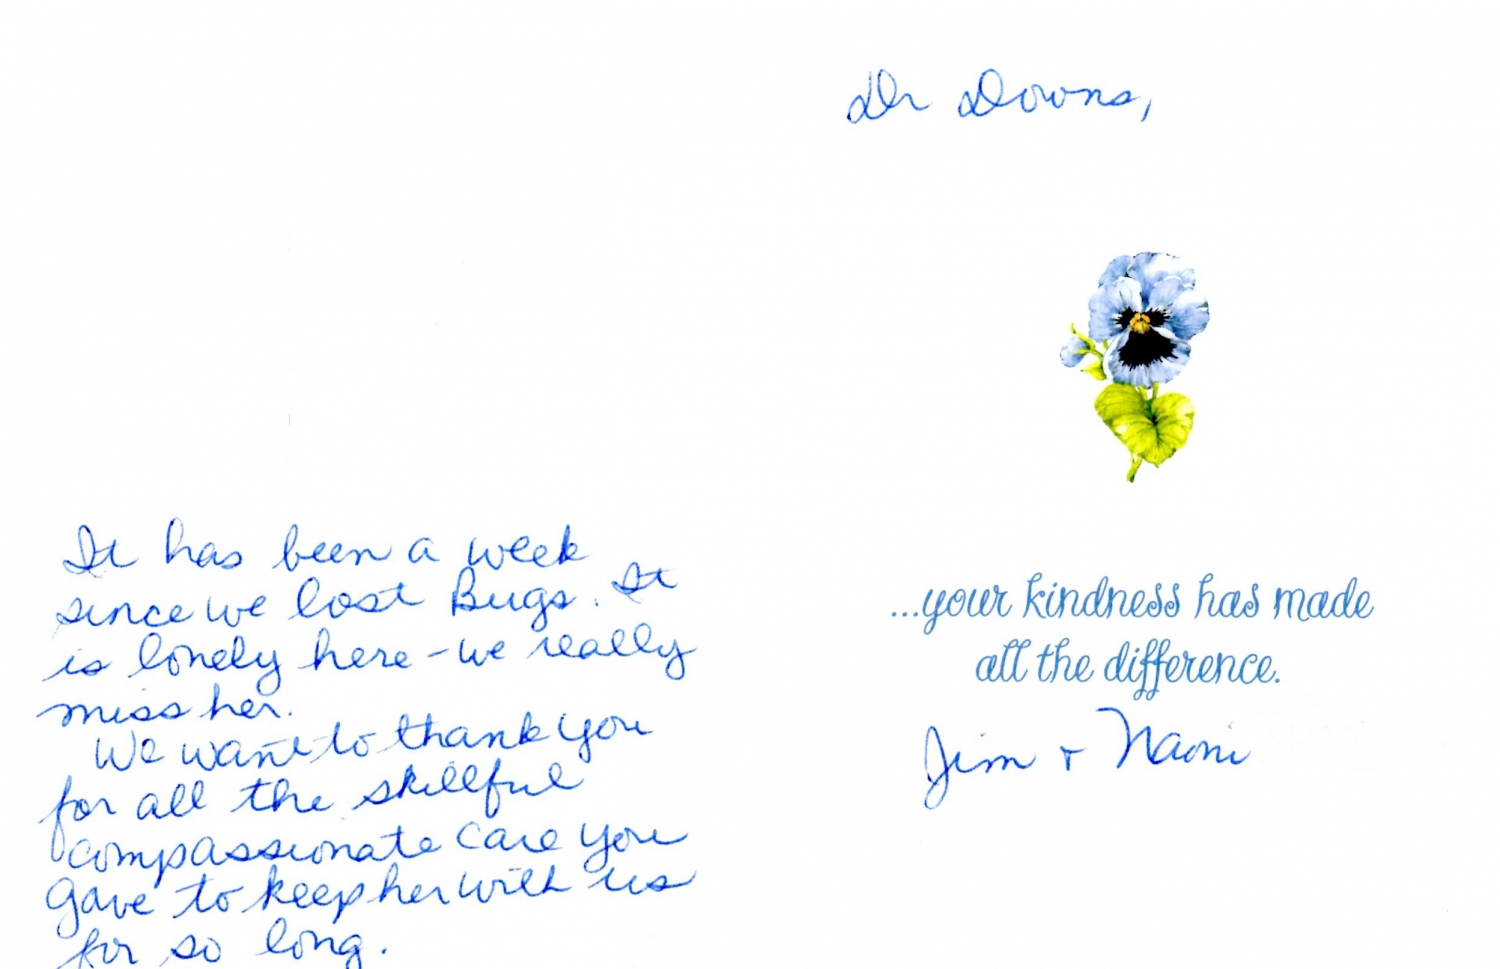 Dr Downs,
It has been a week
since we lost Bugs. It
is lonely here - we really
miss her.
We want to thank you
for all the skillful
compassionate care you
gave to keep her with us
for so long.
...your kindness has made
all the difference.
Jim + Naomi